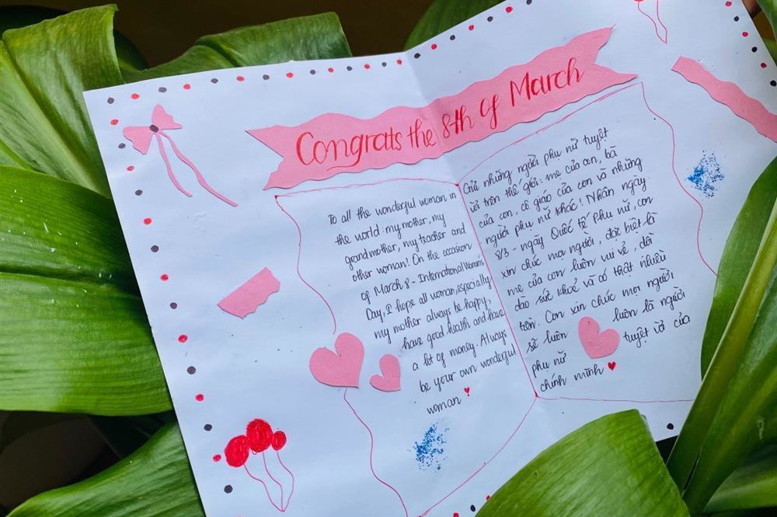 Congrats the 8th of March
To all the wonderful woman in
the world: my mother, my
grandmother, my teacher and
other woman! On the occasion
of March, 8 - International Womens
Day, I hope all woman, especially
my mother always be happy,
have good health and have
a lot of money. Always
be your own wonderful
woman
Gửi những người phụ nữ tuyệt
vời trên thế giới: mẹ của con, bà
của con, cô giáo của con và những
người phụ nữ khác! Nhân ngày
8/3 - ngày Quốc tế Phụ nữ, con
xin chúc mọi người, đặc biệt là
mẹ của con luôn vui vẻ, dồi
dào sức khoẻ và có thật nhiều
tiền. Con xin chúc mọi người
sẽ luôn luôn là người
phụ nữ tuyệt vời của
chính mình